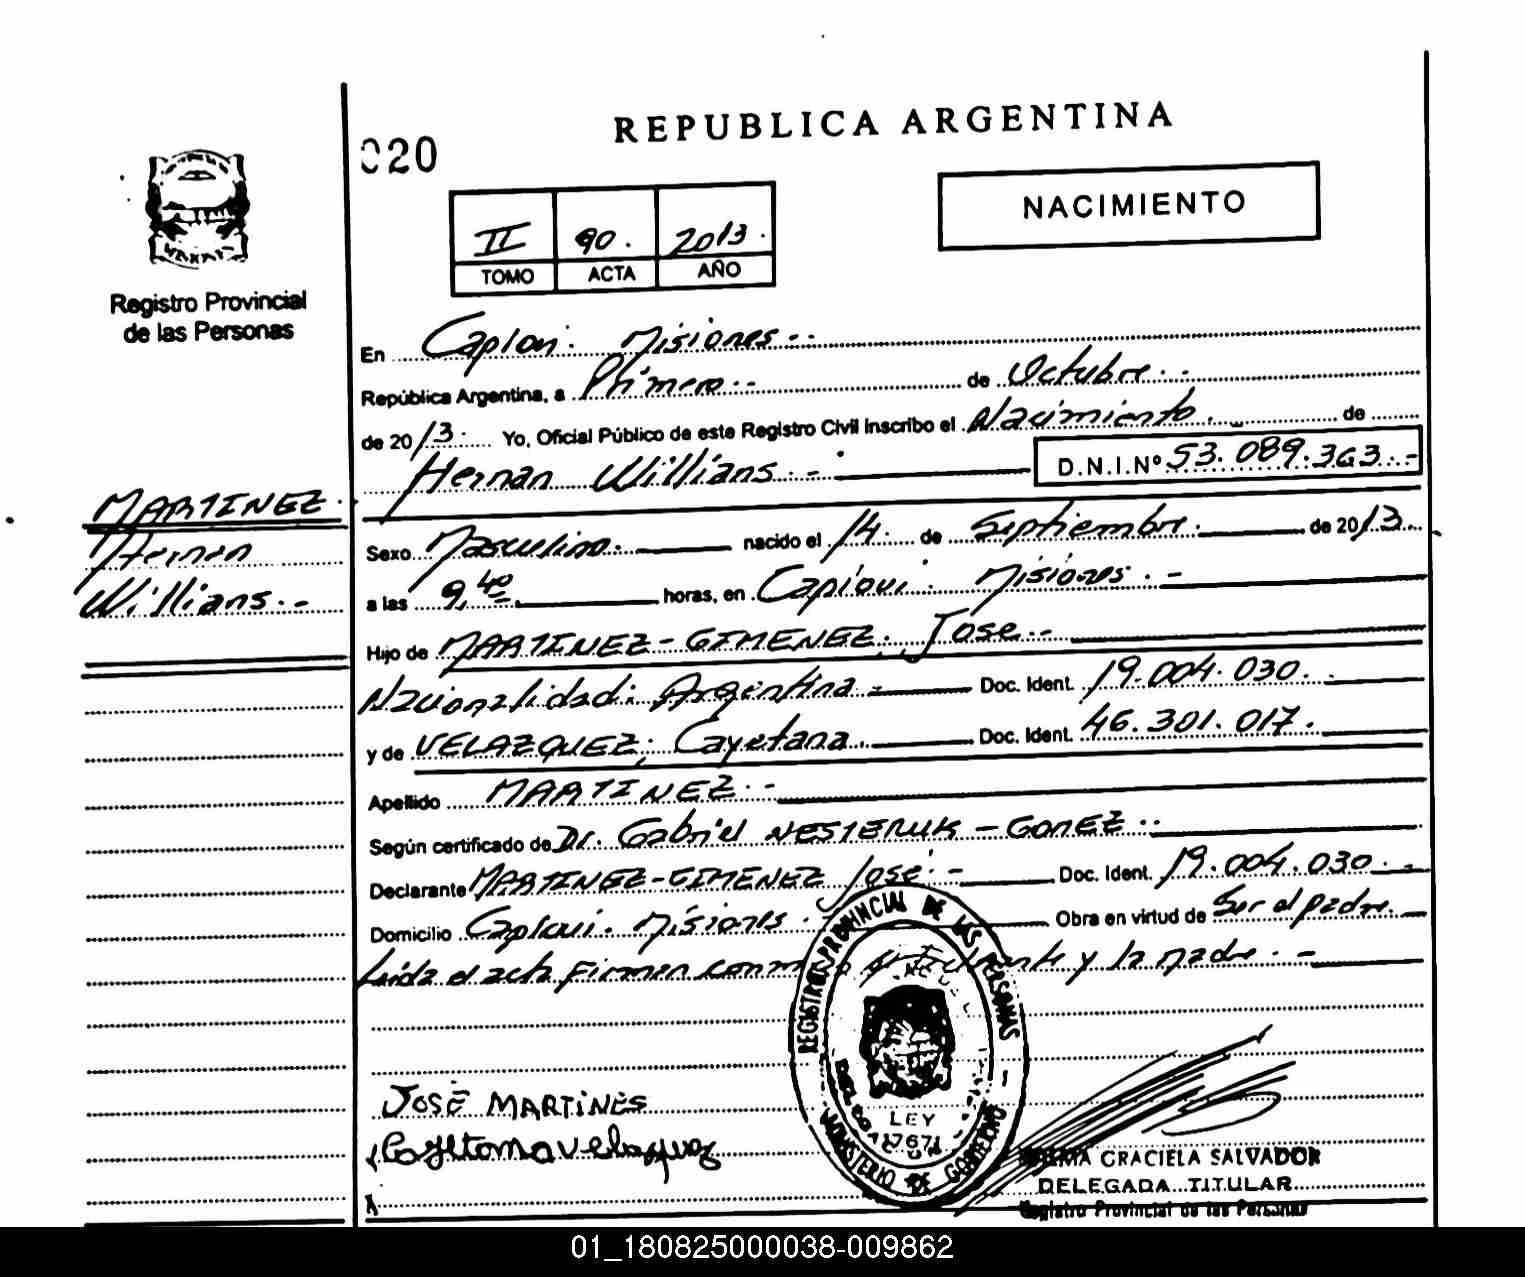 020
REPUBLICA ARGENTINA
NACIMIENTO
II 90. 2013.
TOMO ACTA AÑO
Registro Provincial
de las Personas
En Misiones.-
República Argentina, a Primero.- de Octubre.-
de 2013. Yo, Oficial Público de este Registro Civil Inscribo el Nacimiento. de
Hernan Willians.- D.N.I.Nº 53.089.363.-
MARTINEZ.
Hernan
Willians.-
Sexo Masculino. nacido el 14. de Septiembre. de 2013.
a las 9,40 horas, en Capioui. Misiones.-
Hijo de MARTINEZ-GIMENEZ, Jose.-
Nacionalidad: Argentina.- Doc. Ident. 19.004.030.
y de VELAZQUEZ, Cayetana. Doc. Ident. 46.301.017.
Apellido MARTINEZ.-
Según certificado de Dr. Gabriel NESTERUK-GOMEZ.-
Declarante MARTINEZ-GIMENEZ José.- Doc. Ident. 19.004.030.-
Domicilio Capioui. Misiones.- Obra en virtud de Ser el padre.
Leida el acta firman y la madre.-
REGISTRO PROVINCIAL DE LAS PERSONAS
LEY
17671
MINISTERIO DE GOBIERNO
JOSÉ MARTINES
Cayetana Velazquez
GRACIELA SALVADOR
DELEGADA TITULAR
Registro Provincial de las Personas
01_180825000038-009862